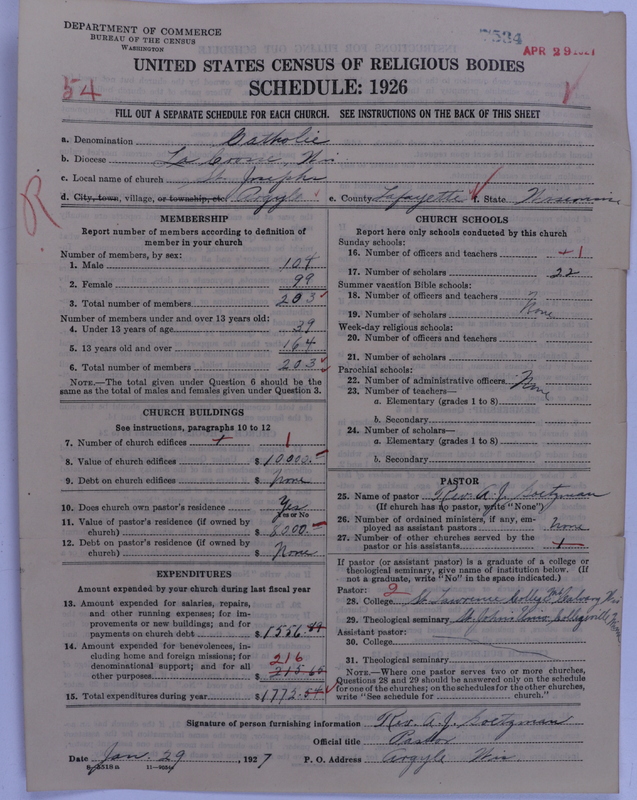 DEPARTMENT OF COMMERCE
BUREAU OF THE CENSUS
WASHINGTON
APR 29 1927
UNITED STATES CENSUS OF RELIGIOUS BODIES
54
SCHEDULE: 1926
FILL OUT A SEPARATE SCHEDULE FOR EACH CHURCH. SEE INSTRUCTIONS ON THE BACK OF THIS SHEET
a. Denomination Catholic
b. Diocese La Crosse, Wis.
c. Local name of church St. Josephs
d. City, town, village, or township, etc. Argyle e. County Lafayette f. State Wisconsin
R
MEMBERSHIP
Report number of members according to definition of member in your church
Number of members, by sex:
1. Male 104
2. Female 99
3. Total number of members 203
Number of members under and over 13 years old:
4. Under 13 years of age 39
5. 13 years old and over 164
6. Total number of members 203
NOTE.—The total given under Question 6 should be the same as the total of males and females given under Question 3.
CHURCH BUILDINGS
See instructions, paragraphs 10 to 12
7. Number of church edifices 1
8. Value of church edifices $ 10000.
9. Debt on church edifices $ None
10. Does church own pastor's residence Yes
Yes or No
11. Value of pastor's residence (if owned by church) $ 8000
12. Debt on pastor's residence (if owned by church) $ None
EXPENDITURES
Amount expended by your church during last fiscal year
13. Amount expended for salaries, repairs, and other running expenses; for improvements or new buildings; and for payments on church debt $ 1556.44
14. Amount expended for benevolences, including home and foreign missions; for denominational support; and for all other purposes 216 $ 215.60
15. Total expenditures during year $ 1772.54
CHURCH SCHOOLS
Report here only schools conducted by this church
Sunday schools:
16. Number of officers and teachers 1
17. Number of scholars 22
Summer vacation Bible schools:
18. Number of officers and teachers
19. Number of scholars None
Week-day religious schools:
20. Number of officers and teachers
21. Number of scholars
Parochial schools:
22. Number of administrative officers None
23. Number of teachers—
a. Elementary (grades 1 to 8)
b. Secondary
24. Number of scholars—
a. Elementary (grades 1 to 8)
b. Secondary
PASTOR
25. Name of pastor Rev. A. J. Soetzman
(If church has no pastor, write "None")
26. Number of ordained ministers, if any, employed as assistant pastors None
27. Number of other churches served by the pastor or his assistants 1
If pastor (or assistant pastor) is a graduate of a college or theological seminary, give name of institution below. (If not a graduate, write "No" in the space indicated.)
Pastor:
28. College St. Lawrence College Mt. Calvary Wis
29. Theological seminary St. Johns Univ. Collegeville Minn
Assistant pastor:
30. College
31. Theological seminary
NOTE.—Where one pastor serves two or more churches, Questions 28 and 29 should be answered only on the schedule for one of the churches; on the schedules for the other churches, write "See schedule for church."
Signature of person furnishing information Rev. A. J. Soetzman
Official title Pastor
Date Jan. 29, 1927 P. O. Address Argyle Wis.